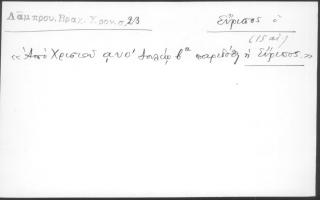 Λάμπρου. Βραχ. Χρον. σ. 23
Εὔριπος ὁ
(15 αἰ)
«Ἀπὸ Χριστοῦ ͵αυο' Ἰουλίῳ βᾳ παρεδόθη ἡ Εὔριπος.»